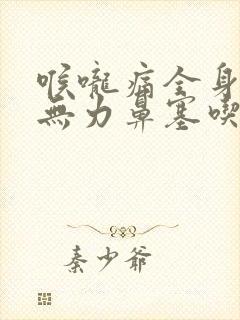 喉嚨痛全身
無力鼻塞喫
秦少爺